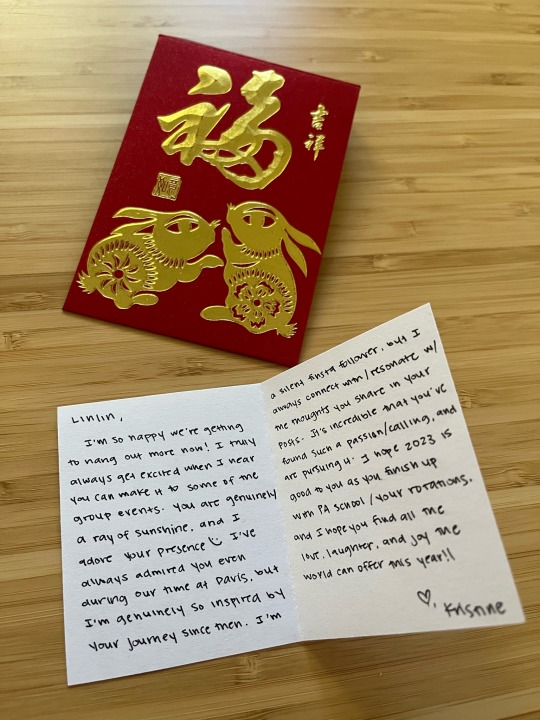 福
吉祥
Linlin,
I'm so happy we're getting
to hang out more now! I truly
always get excited when I hear
you can make it to some of the
group events. You are genuinely
a ray of sunshine, and I
adore your presence I've
always admired you even
during our time at Davis, but
I'm genuinely so inspired by
your journey since then. I'm
a silent finsta follower, but I
always connect with/resonate w/
the thoughts you share in your
posts. It's incredible that you've
found such a passion/calling, and
are pursuing it. I hope 2023 is
good to you as you finish up
with PA school/your rotations,
and I hope you find all the
love, laughter, and joy the
world can offer this year!!
♡, Kristine